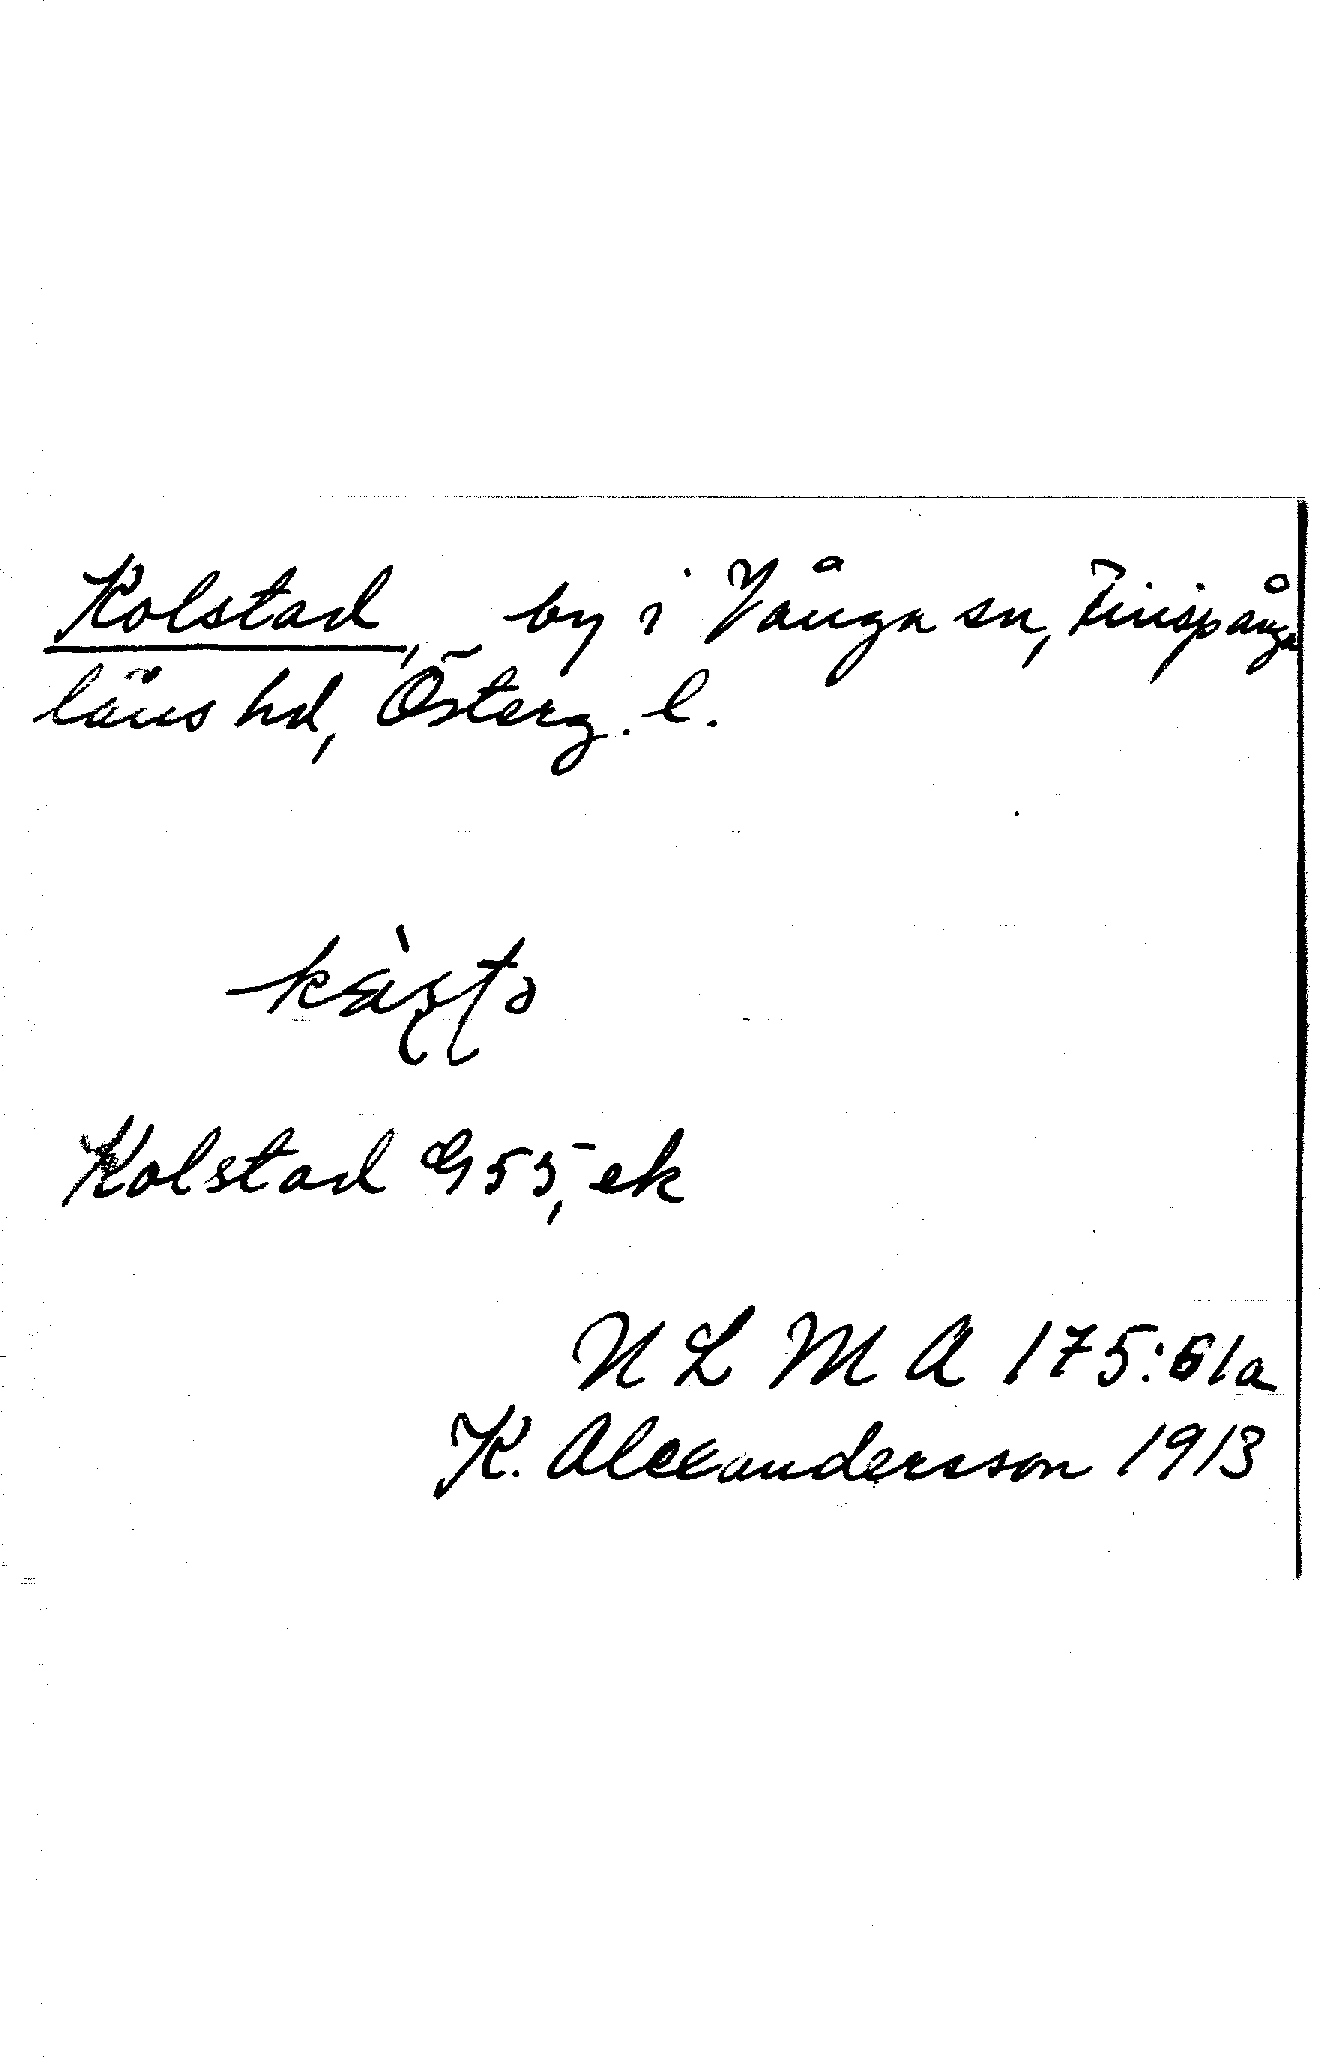 Kolstad, by i Vånga sn, Finspånga
läns hd, Österg. l.
Kolstad G 55, ek
N L M A 175:61a
K. Alexandersson 1913